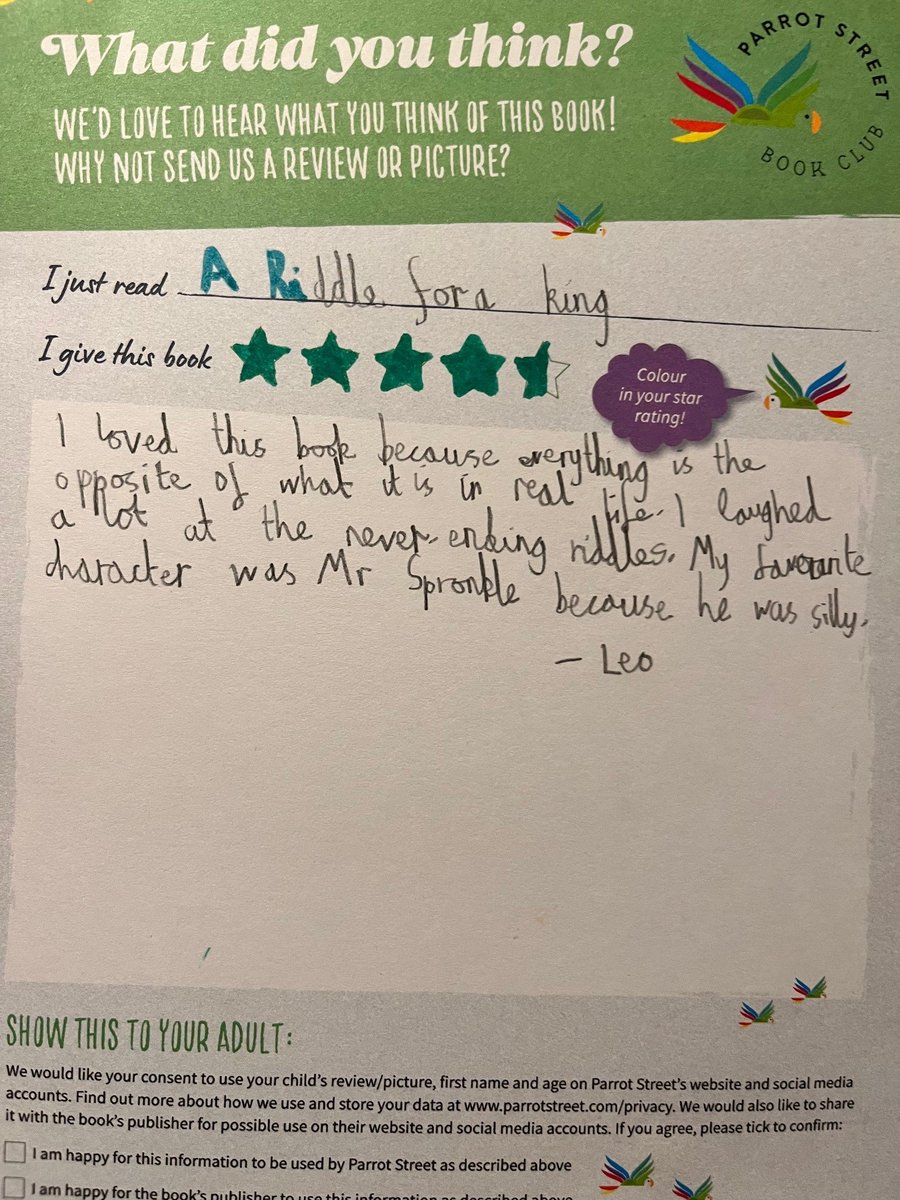 What did you think?
PARROT STREET
BOOK CLUB
WE'D LOVE TO HEAR WHAT YOU THINK OF THIS BOOK!
WHY NOT SEND US A REVIEW OR PICTURE?
I just read A Riddle for a king
I give this book
Colour
in your star
rating!
I loved this book because everything is the
opposite of what it is in real life. I laughed
a lot at the never-ending riddles. My favourite
character was Mr Spronkle because he was silly.
– Leo
SHOW THIS TO YOUR ADULT:
We would like your consent to use your child's review/picture, first name and age on Parrot Street's website and social media
accounts. Find out more about how we use and store your data at www.parrotstreet.com/privacy. We would also like to share
it with the book's publisher for possible use on their website and social media accounts. If you agree, please tick to confirm:
I am happy for this information to be used by Parrot Street as described above
I am happy for the book's publisher to use this information as described above